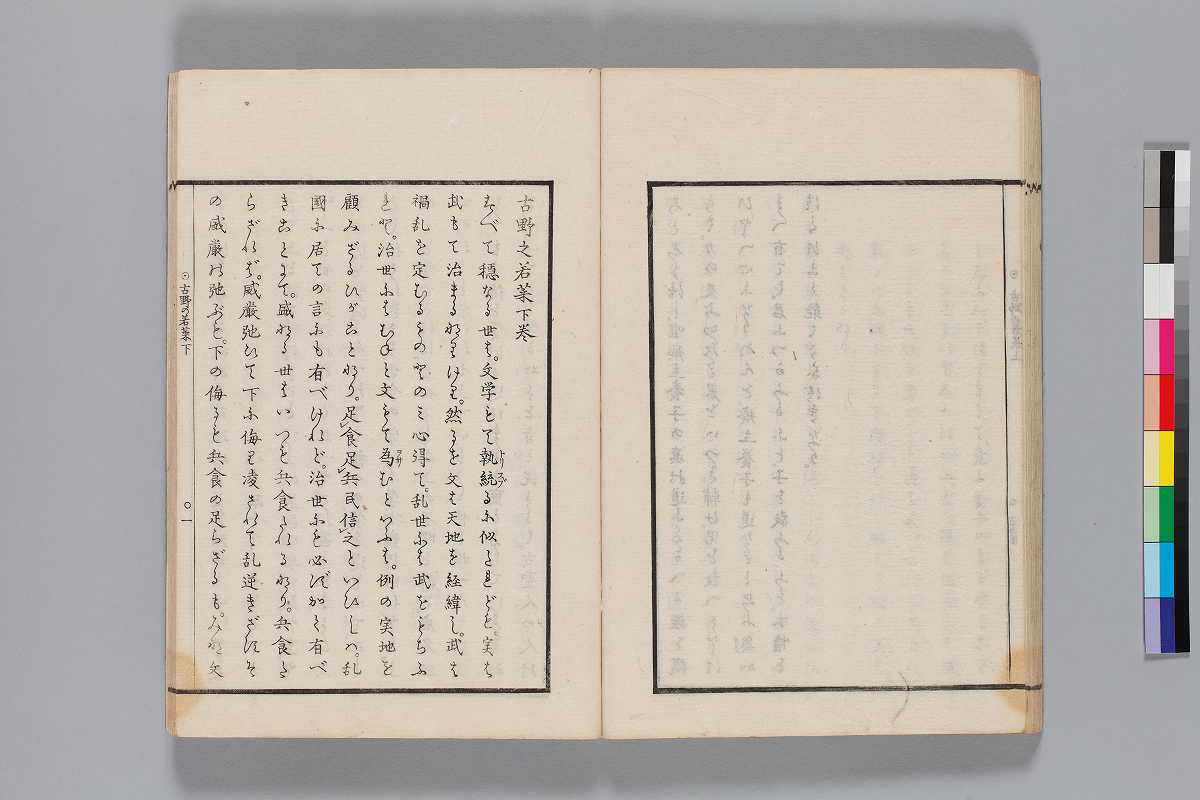 古野之若菜下巻
すべて穏なる世は。文学もて執統るに似たれども。実は
武もて治まるなりけり。然るを文は天地を経緯し。武は
禍乱を定むるもの也とのミ心得て。乱世には武をもちふ
と也。治世にはむねと文もて為むといふは。例の実地を
顧みざるひがことなり。足食足兵民信之といひしハ。乱
國に居ての言にも有べけれど。治世にも必ずかく有べ
きことにて。盛なる世はいつも兵食たれるなり。兵食た
らざれば。威厳弛びて下に侮り凌されて乱逆きざすそ
の威厳の弛ぶと。下の侮ると兵食の足らざるも。みな文
古野の若菜下
〇一